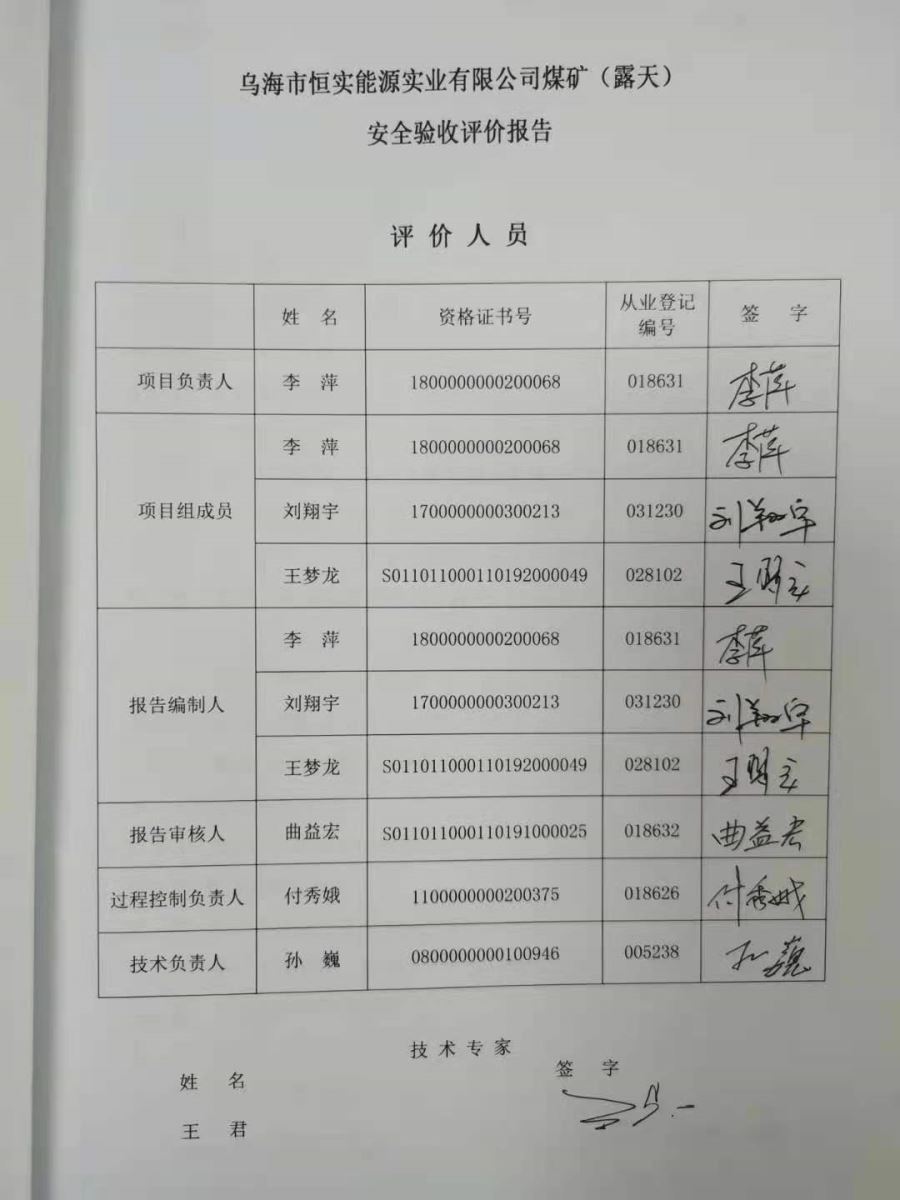 乌海市恒实能源实业有限公司煤矿（露天）
安全验收评价报告
评价人员
姓 名 资格证书号 从业登记编号 签 字
项目负责人 李 萍 1800000000200068 018631 李萍
项目组成员 李 萍 1800000000200068 018631 李萍
刘翔宇 1700000000300213 031230 刘翔宇
王梦龙 S011011000110192000049 028102 王梦龙
报告编制人 李 萍 1800000000200068 018631 李萍
刘翔宇 1700000000300213 031230 刘翔宇
王梦龙 S011011000110192000049 028102 王梦龙
报告审核人 曲益宏 S011011000110191000025 018632 曲益宏
过程控制负责人 付秀娥 1100000000200375 018626 付秀娥
技术负责人 孙 巍 0800000000100946 005238 孙巍
技术专家
姓 名 签 字
王 君